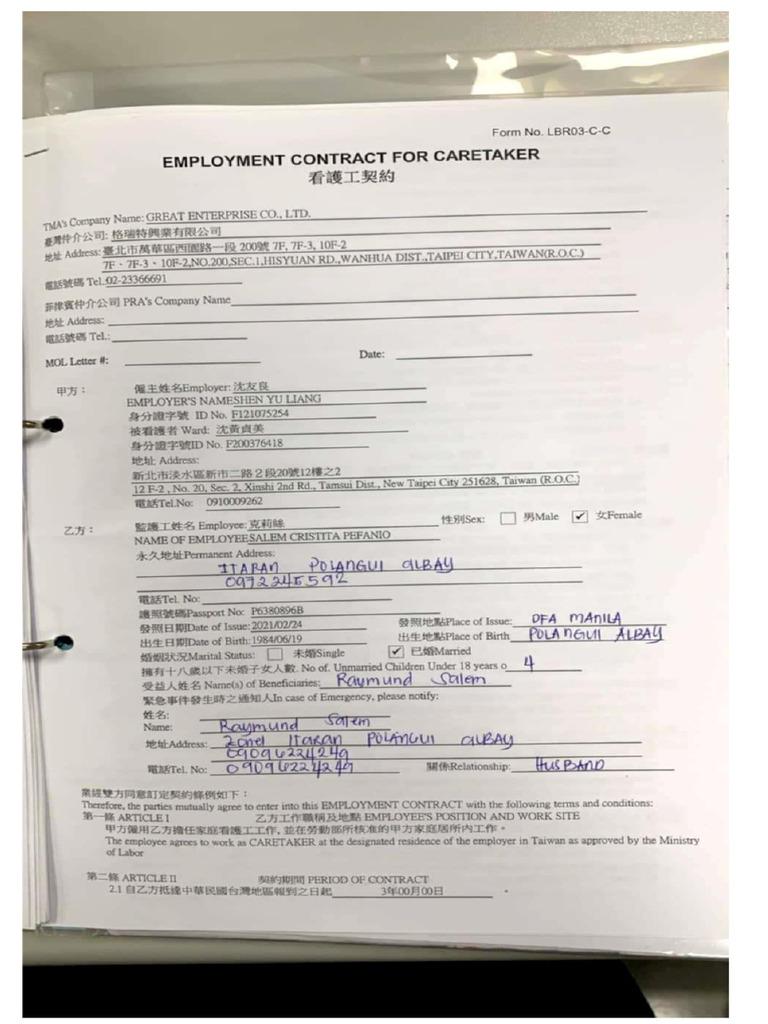 Form No. LBR03-C-C
EMPLOYMENT CONTRACT FOR CARETAKER
看護工契約
TMA's Company Name: GREAT ENTERPRISE CO., LTD.
臺灣仲介公司: 格瑞特興業有限公司
地址 Address: 臺北市萬華區西園路一段 200號 7F, 7F-3, 10F-2
7F、7F-3、10F-2,NO.200,SEC.1,HISYUAN RD.,WANHUA DIST.,TAIPEI CITY,TAIWAN(R.O.C.)
電話號碼 Tel.:02-23366691
菲律賓仲介公司 PRA's Company Name
地址 Address:
電話號碼 Tel.:
MOL Letter #: Date:
甲方： 僱主姓名Employer: 沈友良
EMPLOYER'S NAMESHEN YU LIANG
身分證字號 ID No. F121075254
被看護者 Ward: 沈黃貞美
身分證字號ID No. F200376418
地址 Address:
新北市淡水區新市二路２段20號12樓之2
12 F-2 , No. 20, Sec. 2, Xinshi 2nd Rd., Tamsui Dist., New Taipei City 251628, Taiwan (R.O.C.)
電話Tel.No: 0910009262
乙方： 監護工姓名 Employee: 克莉絲 性別Sex: 男Male ✓ 女Female
NAME OF EMPLOYEESALEM CRISTITA PEFANIO
永久地址Permanent Address:
ITARAN POLANGUI ALBAY
0972245592
電話Tel. No:
護照號碼Passport No: P6380896B
發照日期Date of Issue: 2021/02/24 發照地點Place of Issue: DFA MANILA
出生日期Date of Birth: 1984/06/19 出生地點Place of Birth POLANGUI ALBAY
婚姻狀況Marital Status: 未婚Single ✓ 已婚Married
擁有十八歲以下未婚子女人數. No of. Unmarried Children Under 18 years o 4
受益人姓名 Name(s) of Beneficiaries: Raymund Salem
緊急事件發生時之通知人In case of Emergency, please notify:
姓名:
Name: Raymund Salem
地址Address: Zone1 ITARAN POLANGUI ALBAY
09096224249
電話Tel. No: 09096224249 關係Relationship: HUSBAND
業經雙方同意訂定契約條例如下：
Therefore, the parties mutually agree to enter into this EMPLOYMENT CONTRACT with the following terms and conditions:
第一條 ARTICLE I 乙方工作職稱及地點 EMPLOYEE'S POSITION AND WORK SITE
甲方僱用乙方擔任家庭看護工工作, 並在勞動部所核准的甲方家庭居所內工作。
The employee agrees to work as CARETAKER at the designated residence of the employer in Taiwan as approved by the Ministry
of Labor
第二條 ARTICLE II 契約期間 PERIOD OF CONTRACT
2.1 自乙方抵達中華民國台灣地區報到之日起 3年00月00日 。